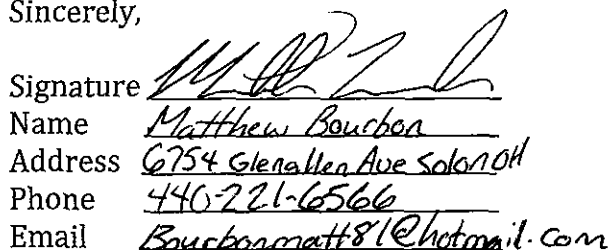 Sincerely,
Signature
Name Matthew Bourbon
Address 6754 Glenallen Ave Solon OH
Phone 440-221-6566
Email Bourbonmatt81@hotmail.com